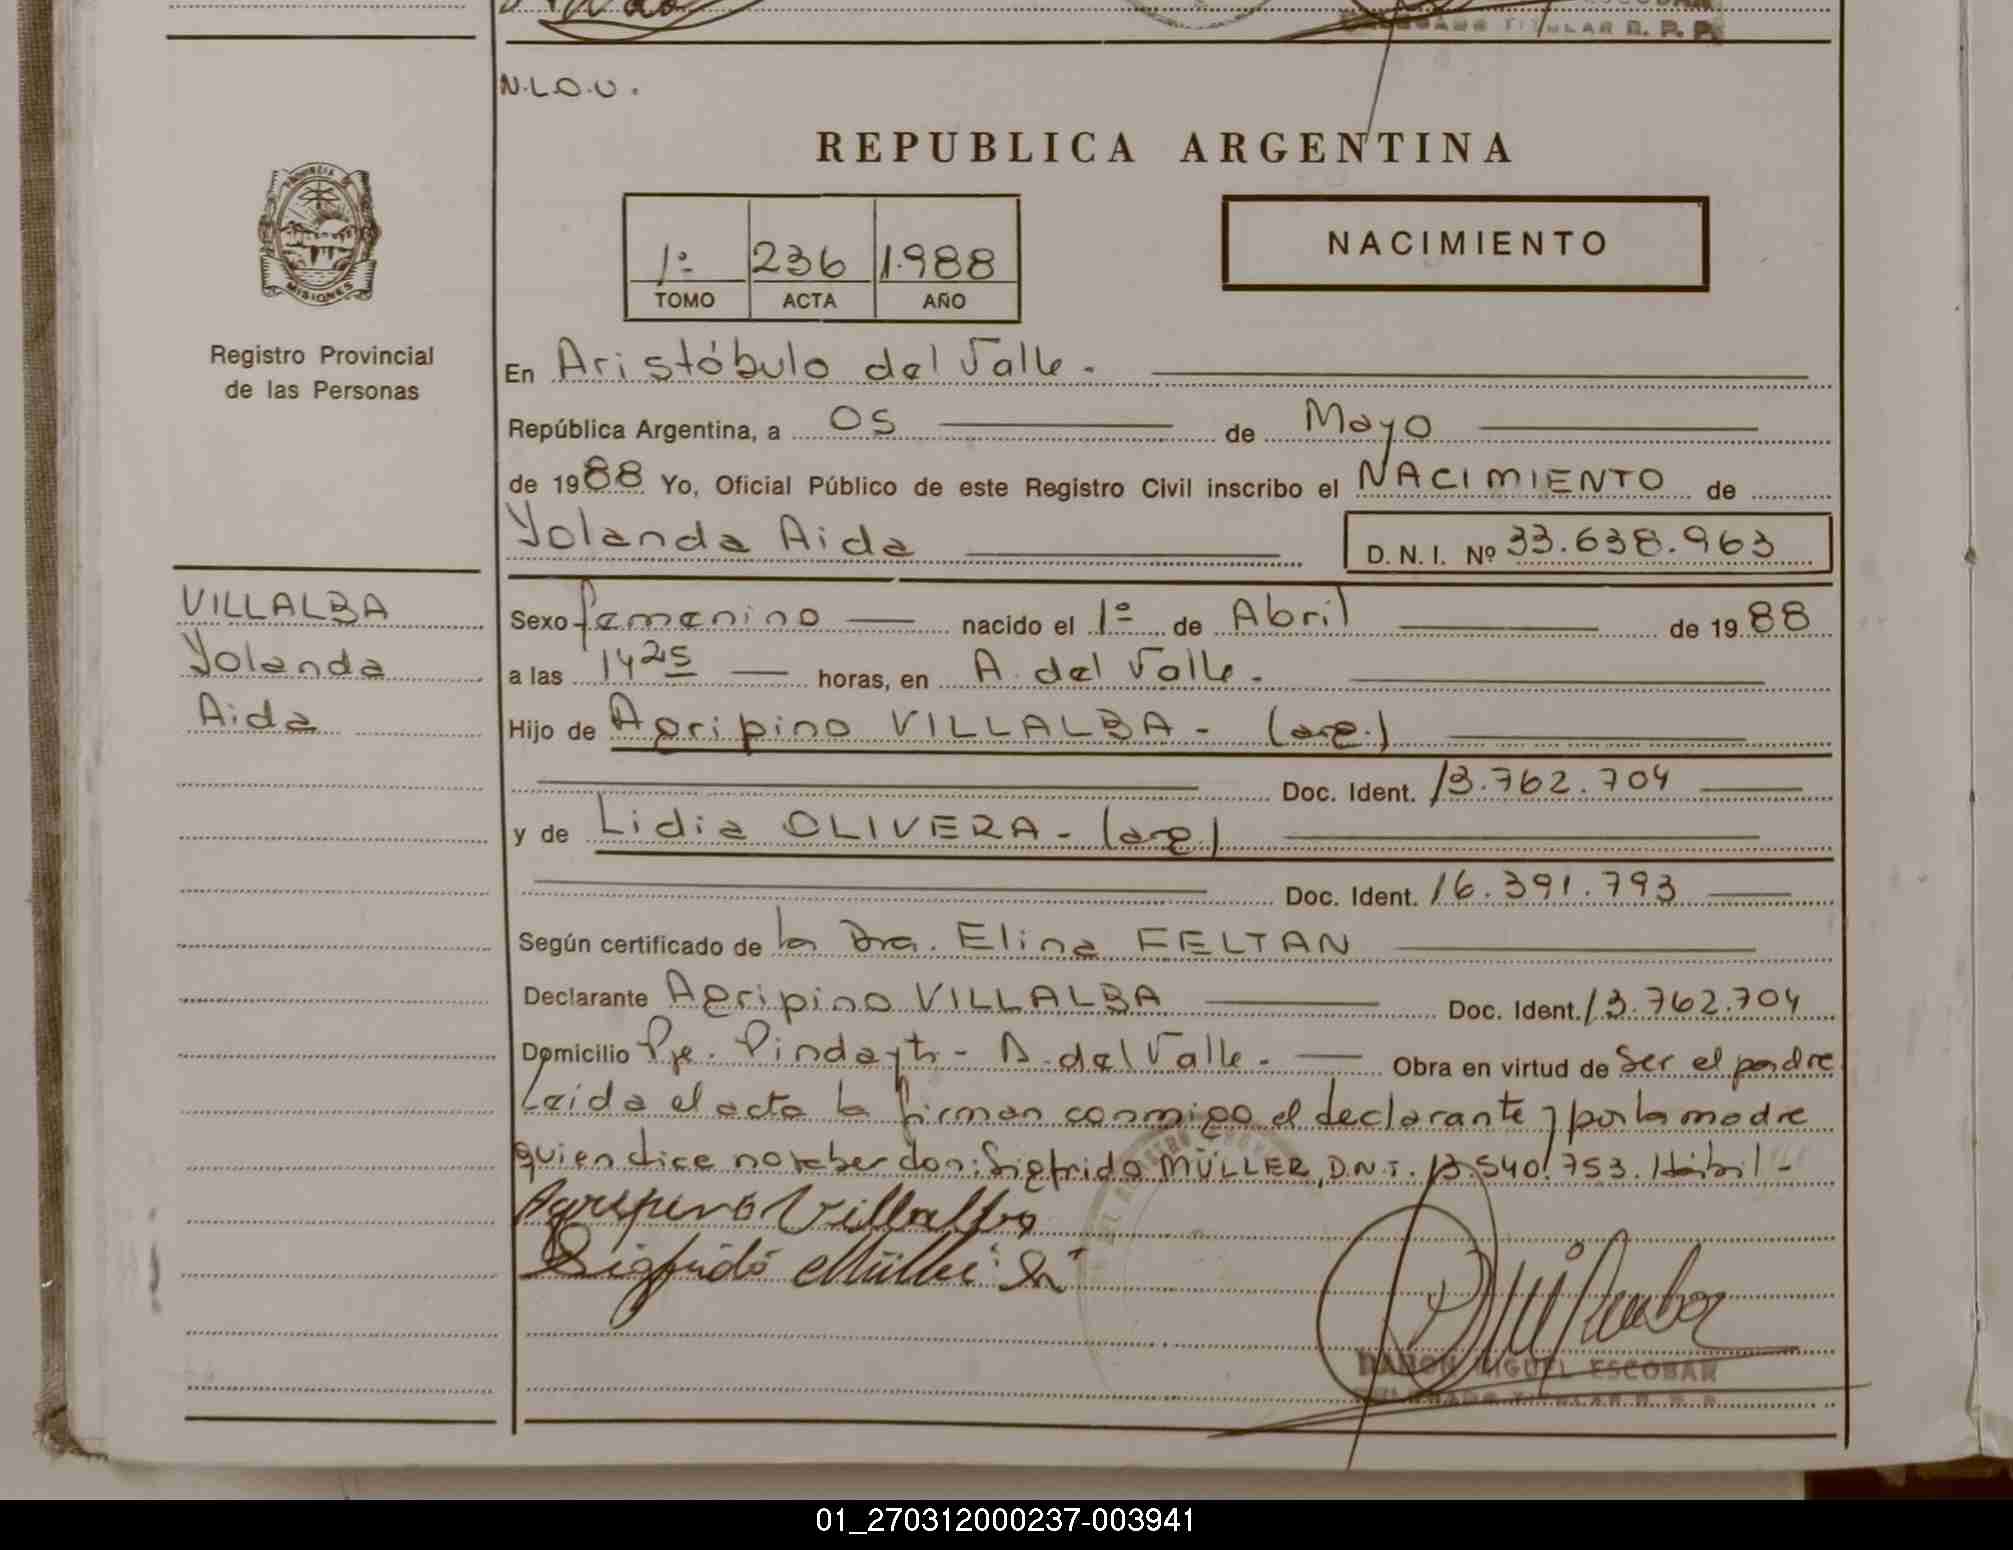 DELEGADO TITULAR R. P. P.
N.L.O.U.
REPUBLICA ARGENTINA
PROVINCIA DE
MISIONES
1º 236 1.988
TOMO ACTA AÑO
NACIMIENTO
Registro Provincial
de las Personas
En Aristóbulo del Valle.
República Argentina, a 05 de Mayo
de 1988 Yo, Oficial Público de este Registro Civil inscribo el NACIMIENTO de
Yolanda Aida D.N.I. Nº 33.638.963
VILLALBA
Yolanda
Aida
Sexo femenino nacido el 1º de Abril de 1988
a las 14 25 horas, en A. del Valle.
Hijo de Agripino VILLALBA - (arg.)
Doc. Ident. 13.762.704
y de Lidia OLIVERA - (arg)
Doc. Ident. 16.391.793
Según certificado de la Dra. Elina FELTAN
Declarante Agripino VILLALBA Doc. Ident. 13.762.704
Domicilio Pje. Pindayti - A. del Valle. - Obra en virtud de Ser el padre
Leida el acta la firman conmigo el declarante y por la madre
quien dice no saber don: Sigfrido MÜLLER, D.N.I. 13.540.753. Hábil -
Agripino Villalba
Sigfrido Müller
RAMON MIGUEL ESCOBAR
DELEGADO TITULAR R. P. P.
01_270312000237-003941